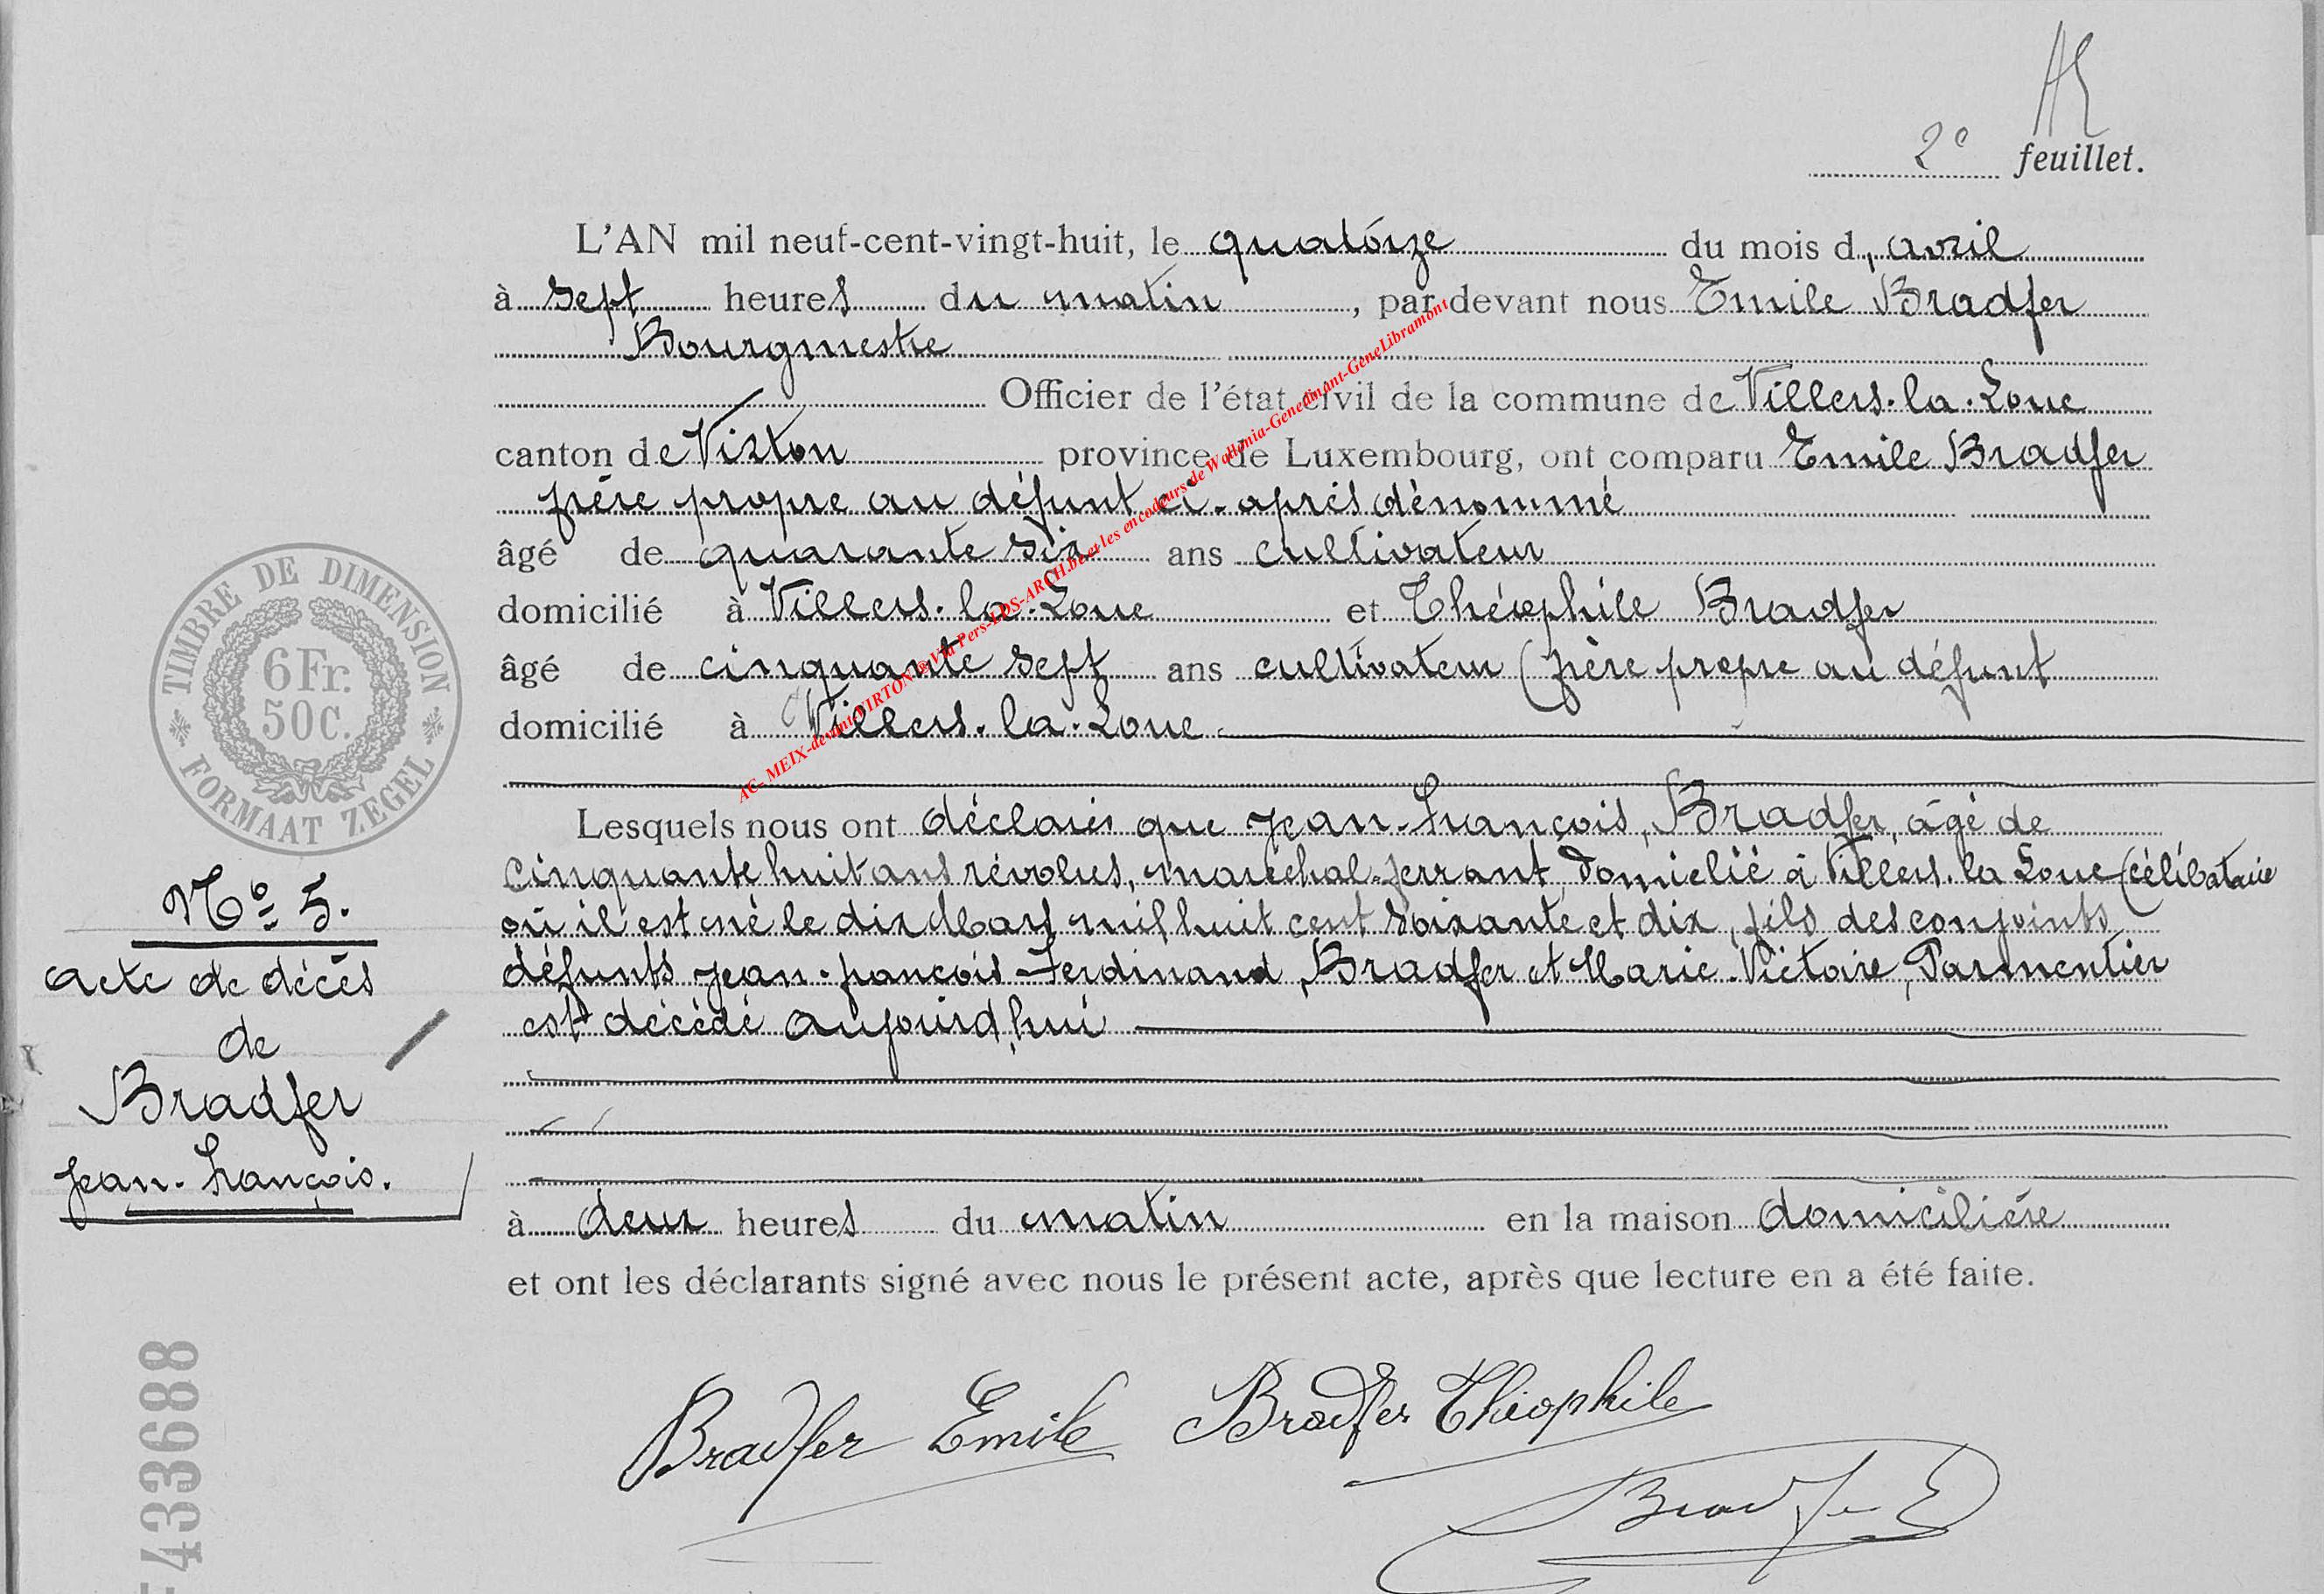 2e feuillet.
L'AN mil neuf-cent-vingt-huit, le quatorze du mois d'avril
à sept heures du matin, par devant nous Emile Bradfer
Bourgmestre
Officier de l'état civil de la commune de Villers-la-Loue
canton de Virton province de Luxembourg, ont comparu Emile Bradfer
frère propre au défunt ci-après dénommé
âgé de quarante six ans cultivateur
domicilié à Villers-la-Loue et Théophile Bradfer
âgé de cinquante sept ans cultivateur (frère propre au défunt
domicilié à Villers-la-Loue
Lesquels nous ont déclaré que Jean-François, Bradfer, âgé de
cinquante huit ans révolus, maréchal-ferrant, domicilié à Villers-la-Loue (célibataire
où il est né le dix Mars mil huit cent soixante et dix, fils des conjoints
défunts Jean-françois-Ferdinand, Bradfer et Marie-Victoire, Parmentier
est décédé aujourd'hui
à deux heures du matin en la maison domicilière
et ont les déclarants signé avec nous le présent acte, après que lecture en a été faite.
Bradfer Emile Bradfer Théophile
Bradfer E
TIMBRE DE DIMENSION
6 Fr.
50 C.
FORMAAT ZEGEL
No 5.
acte de décès
de
Bradfer
Jean-François.
433688
AC- MEIX-devant-VIRTON
LDS-ARCH.be et les encodeurs de Wallonia-Genedinant-GeneLibramont